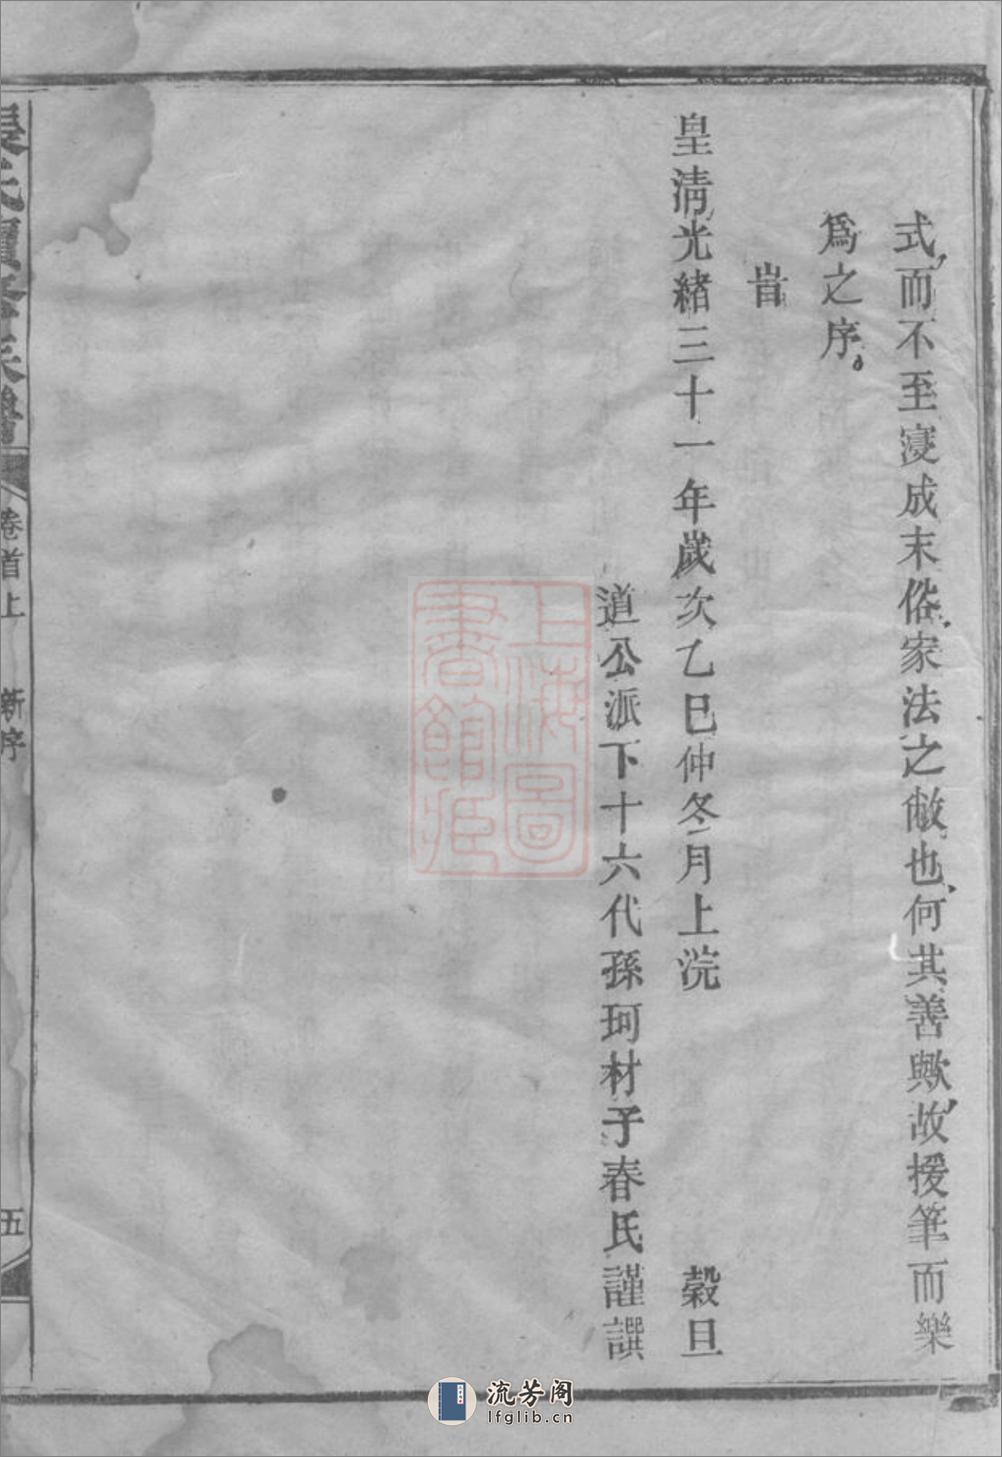 式而不至寖成末俗家法之敝也何其善歟故援筆而樂
為之序。
旹
皇淸光緒三十一年歲次乙巳仲冬月上浣 穀旦
道公派下十六代孫珂材予春氏謹譔
氏重修宗譜
卷首上 新序
五
上海圖
書館藏
流芳阁
lfglib.cn